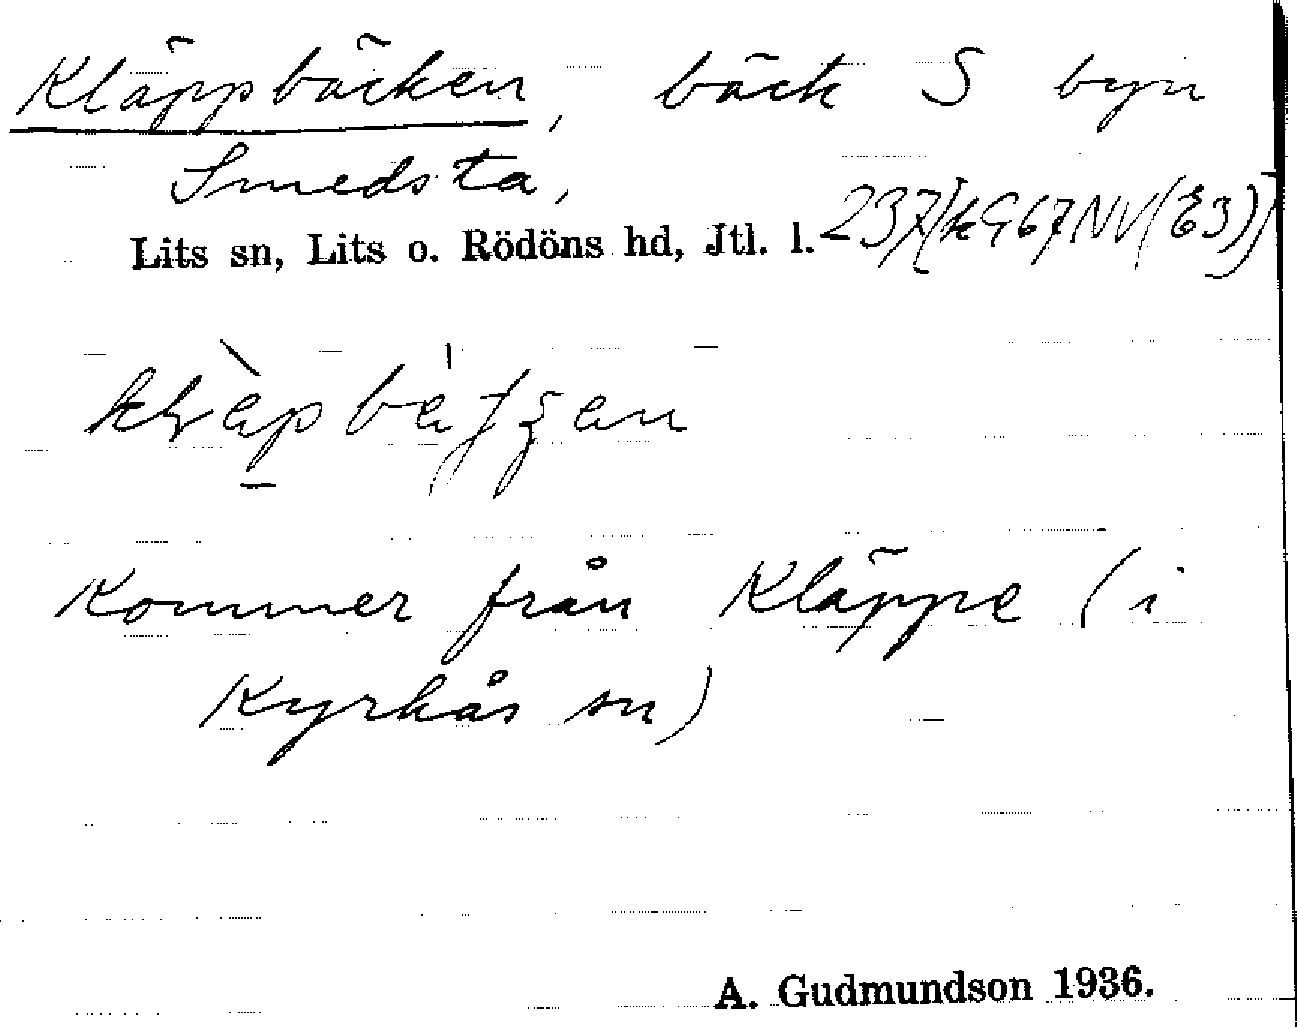 Kläppbäcken, bäck S byn
Smedsta,
Lits sn, Lits o. Rödöns hd, Jtl. l. 237
Kommer från Kläppe (i
Kyrkås sn)
A. Gudmundson 1936.